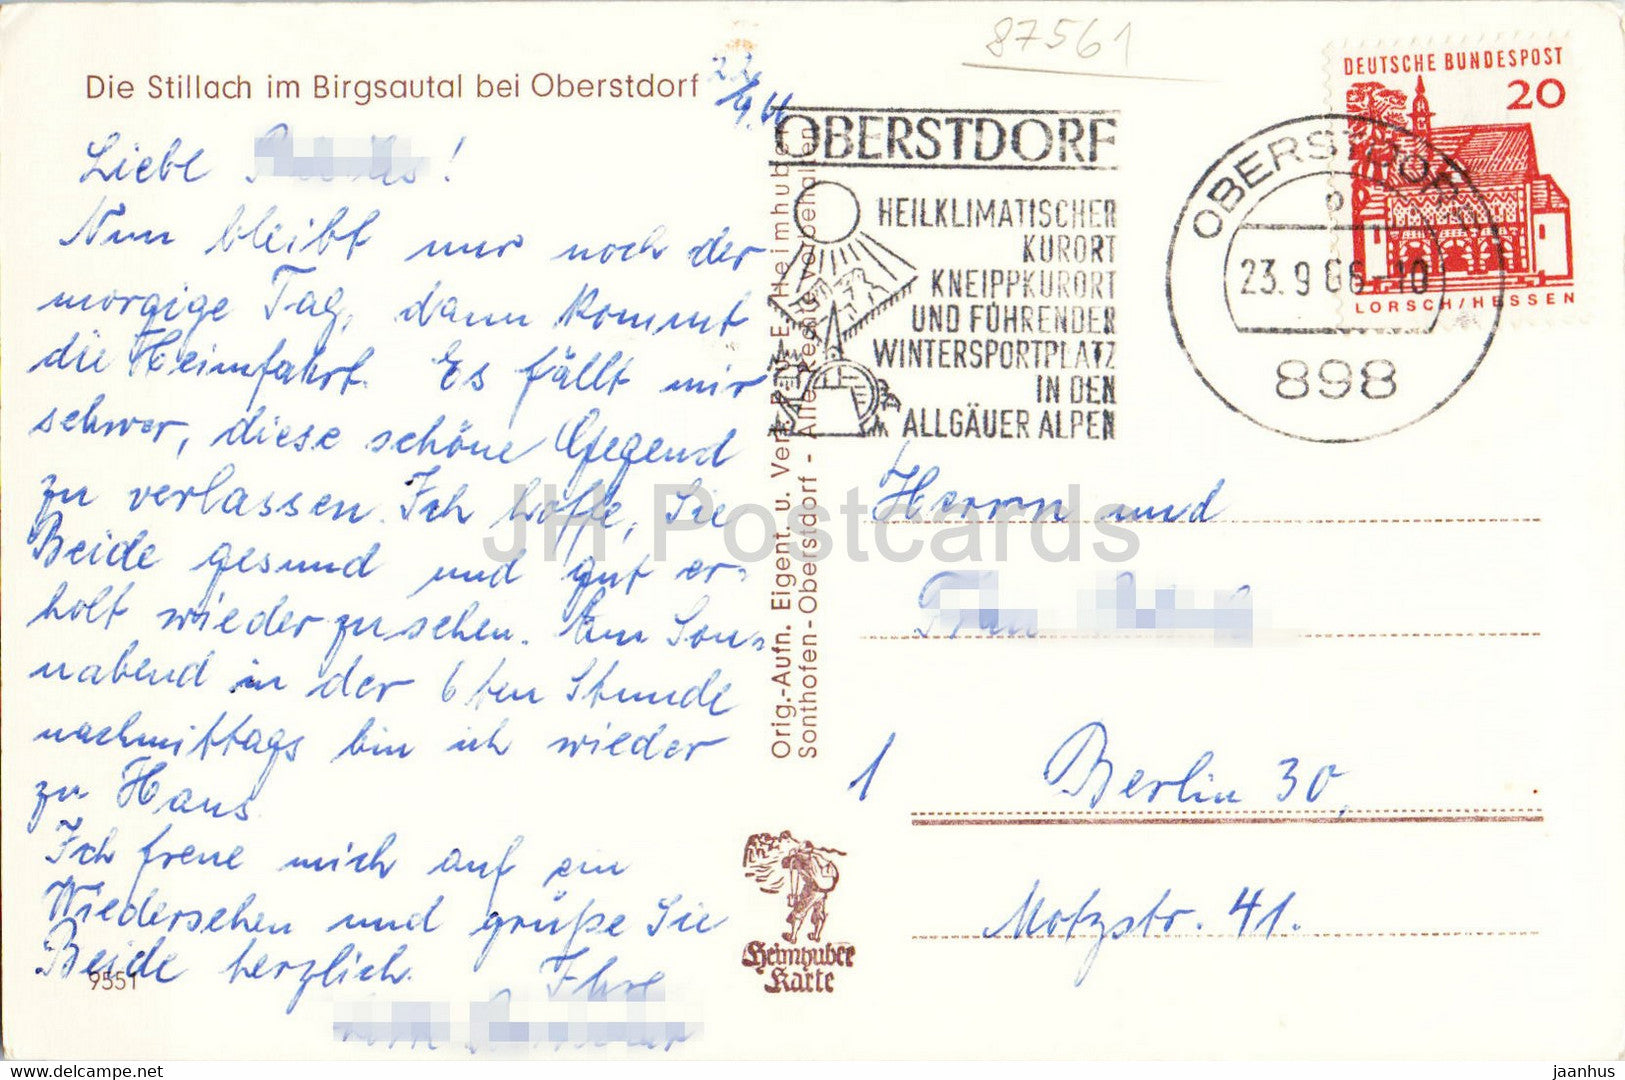 87561
Die Stillach im Birgsautal bei Oberstdorf
22/9.66
Liebe !
Nun bleibt nur noch der
morgige Tag, dann kommt
die Heimfahrt. Es fällt mir
schwer, diese schöne Gegend
zu verlassen. Ich hoffe, Sie
Beide gesund und gut er-
holt wiederzusehen. Am Son-
nabend in der 6ten Stunde
nachmittags bin ich wieder
zu Haus.
Ich freue mich auf ein
Wiedersehen und grüße Sie
Beide herzlich. Ihre
9551
Orig.-Aufn. Eigent. u. Verl. E. Heimhuber
Sonthofen-Oberstdorf - Alle Rechte vorbehalten
OBERSTDORF
HEILKLIMATISCHER
KURORT
KNEIPPKURORT
UND FÜHRENDER
WINTERSPORTPLATZ
IN DEN
ALLGÄUER ALPEN
OBERSTDORF
23.9.66-10
898
DEUTSCHE BUNDESPOST
20
LORSCH/HESSEN
Herrn und
Frau
1 Berlin 30,
Motzstr. 41.
Heimhuber
Karte
JH Postcards
jaanhus / www.delcampe.net